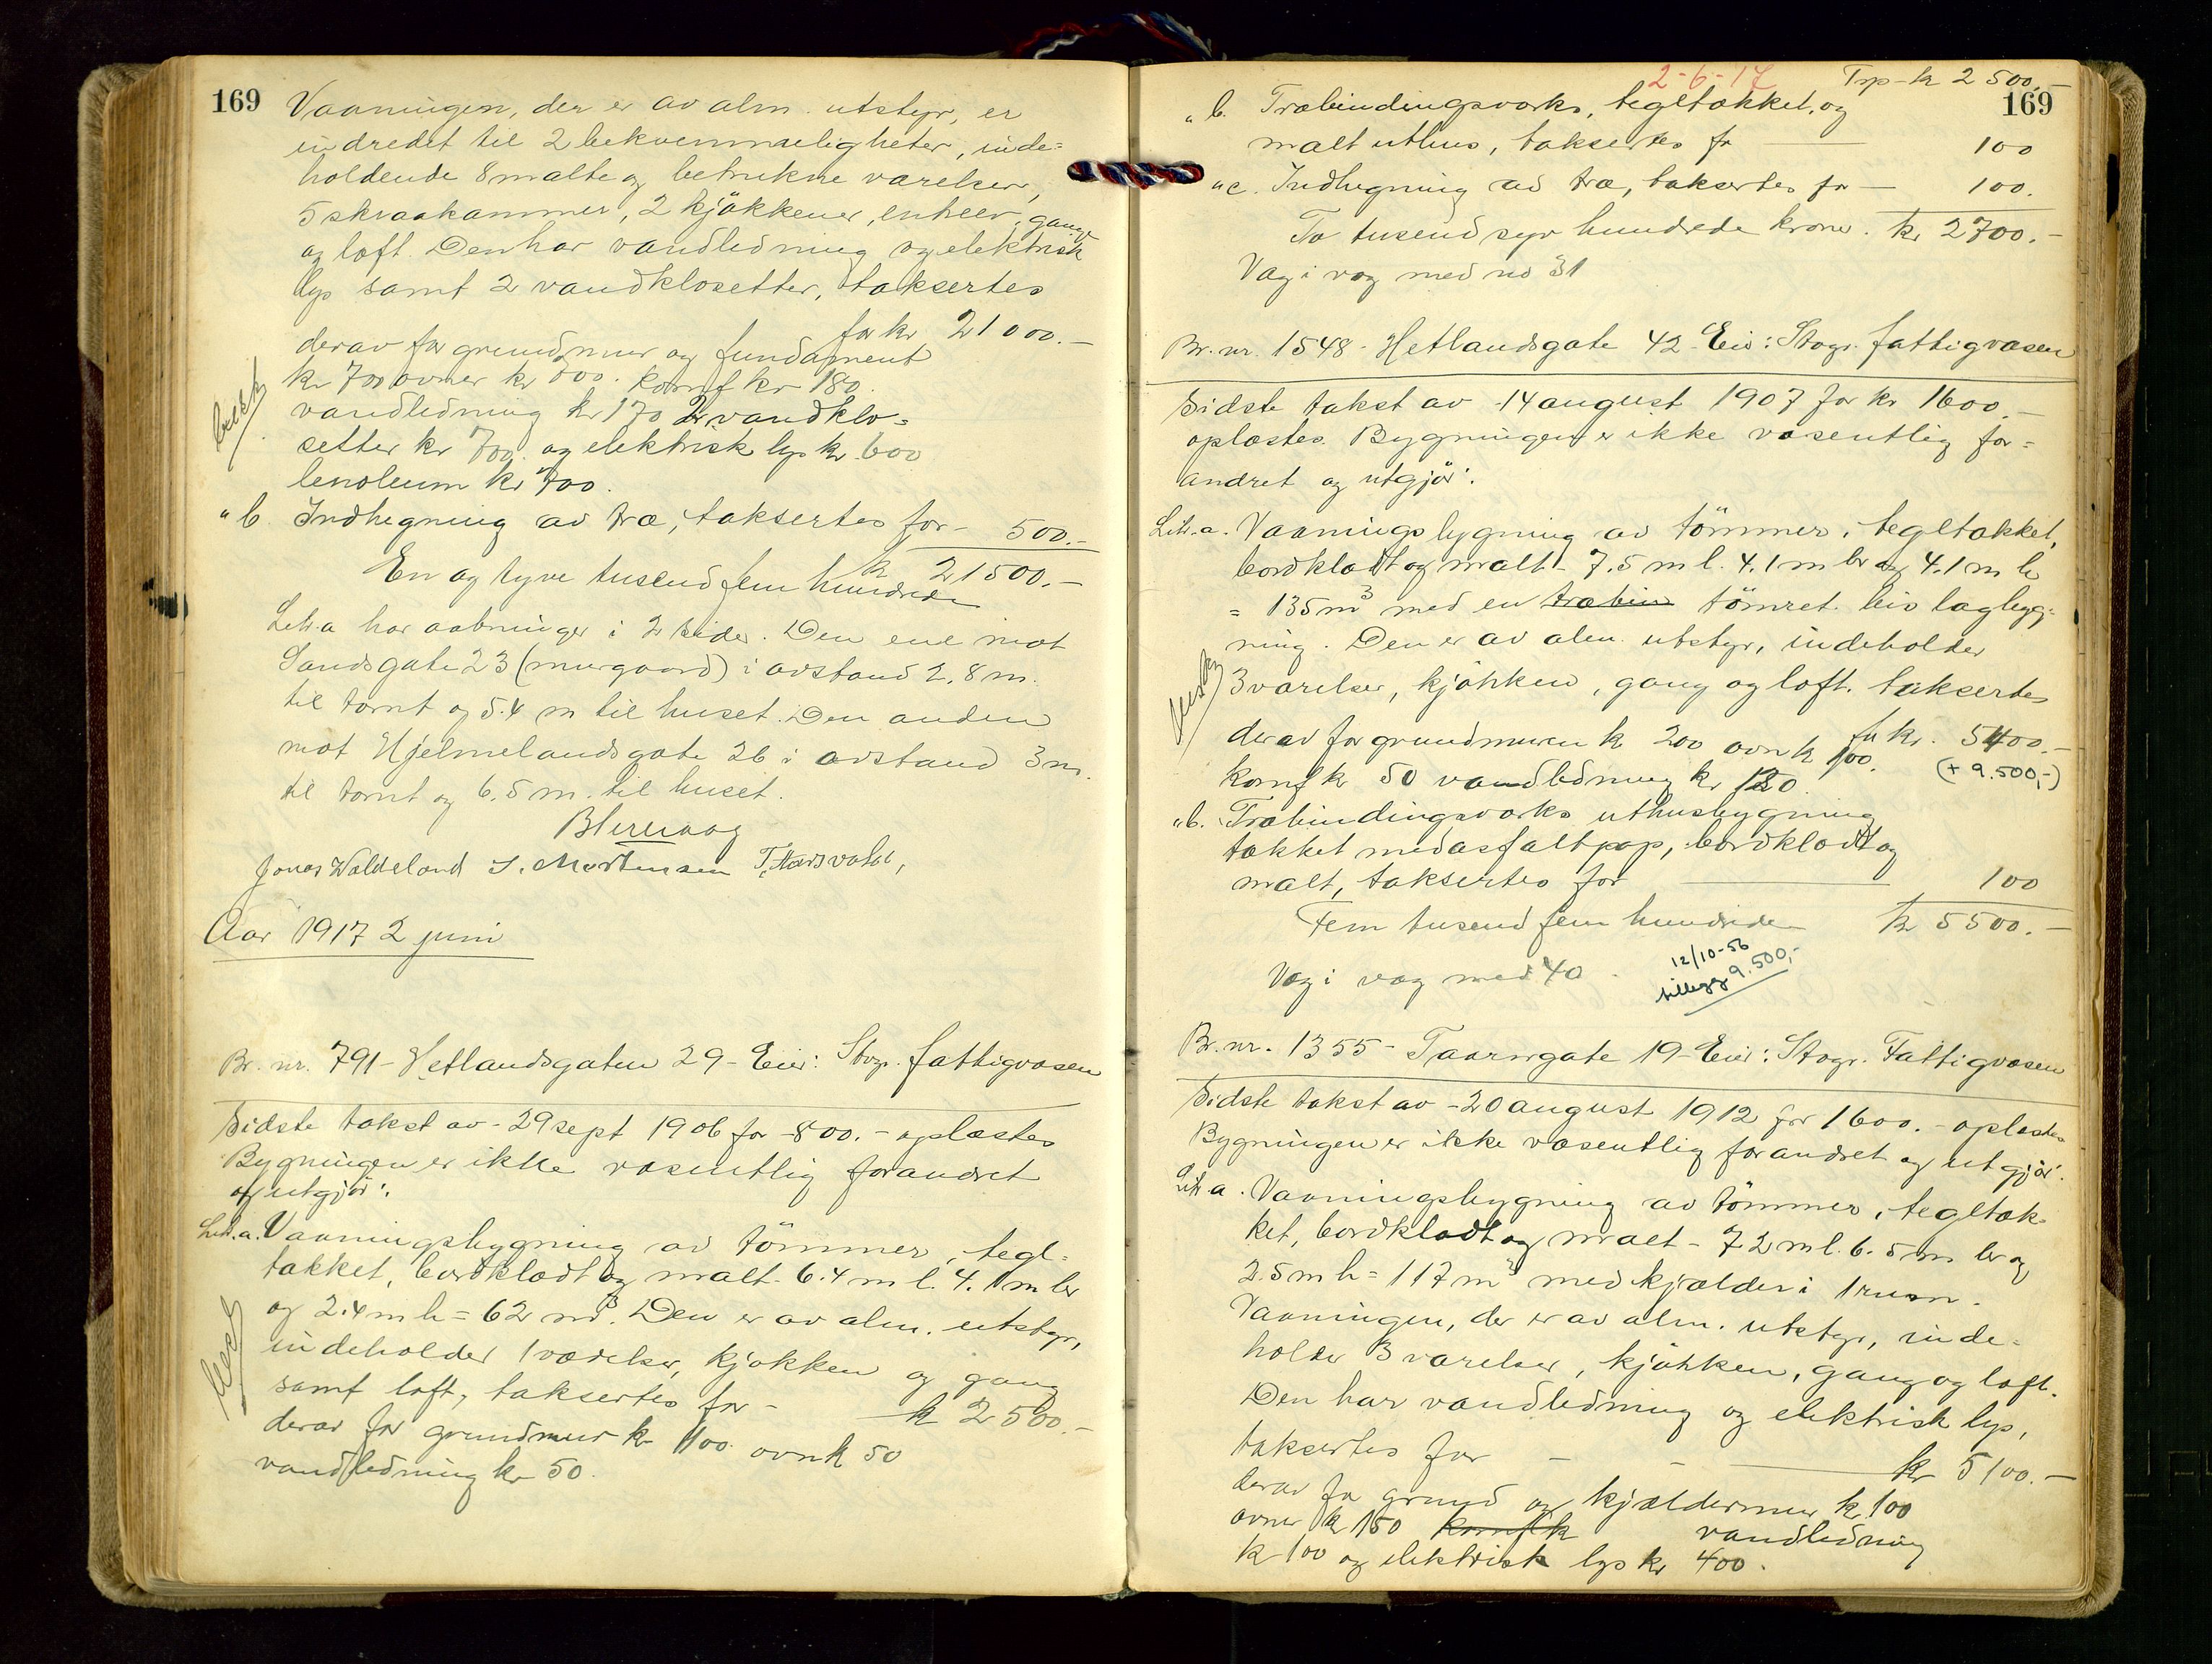 169
Vaaningen, der er av alm. utstyr, er
indredet til 2 bekvemmeligheter, inde=
holdende 8 malte og betrukne værelser,
5 skraakammer, 2 kjøkkener, entreer, gange
og loft. Den har vandledning og elektrisk
lys samt 2 vandklosetter, taksertes
for kr 21000.-
derav for grundmur og fundament
kr 700 ovner kr 600. komf kr 180.
vandledning kr 170 2 vandklo=
setter kr 700. og elektrisk lys kr. 600
lenoleum kr 700.
" b Indhegning av træ, taksertes for - 500.-
kr 21500.-
En og tyve tusend fem hundrede
Litr. a har aabninger i 2 sider. Den ene mot
Sandsgate 23 (murgaard) i avstand 2,8 m.
til tomt og 5.4 m til huset. Den anden
mot Hjelmelandsgate 26 i avstand 3 m.
til tomt og 6.5 m. til huset.
Jonas Waldeland S. Mortensen
Aar 1917 2 juni
Br. nr. 791 - Hetlandsgaten 29 - Eier: Stvgr. fattigvæsen
Sidste takst av - 29 sept 1906 for - 800.- oplæstes
Bygningen er ikke væsentlig forandret
og utgjør:
Litr. a. Vaaningsbygning av tømmer, tegl=
tækket, bordklædt og malt - 6.4 m l. 4.1 m br
og 2.4 m h = 62 m³. Den er av alm. utstyr,
indeholder 1 værelse, kjøkken og gang
samt loft, taksertes for - kr 2500.-
derav for grundmur kr 100. ovn kr 50
vandledning kr 50.
2-6-17 Trp - kr 2500.-
169
" b. Træbindingsverks, tegltækket, og
malt uthus, taksertes for 100
" c. Indhegning av træ, taksertes for - 100.
To tusend syv hundrede kroner. kr 2700.-
Væg i væg med no 31
Br. nr. 1548 - Hetlandsgate 42 - Eier: Stvgr. fattigvæsen
Sidste takst av - 14 august 1907 for kr 1600.-
oplæstes. Bygningen er ikke væsentlig for=
andret og utgjør:
Litr. a. Vaaningsbygning av tømmer, tegltækket,
bordklædt og malt - 7.5 m l. 4.1 m br og 4.1 m h
= 135 m³ med en træbin tømret bislagbyg=
ning. Den er av alm. utstyr, indeholder
3 værelser, kjøkken, gang og loft. taksertes
for kr. 5400.-
derav for grundmuren kr 200 ovn kr 100.
(+ 9.500,-)
komf kr 50 vandledning kr 120.
" b. Træbindingsverks uthusbygning
tækket med asfaltpap, bordklædt og
malt, taksertes for 100
Fem tusend fem hundrede kr 5500.-
Væg i væg med 40
12/10-56
tillegg 9.500,-
Br. nr. 1355 - Taarngate 19 - Eier: Stvgr. Fattigvæsen
Sidste takst av - 20 august 1912 for 1600.- oplæstes
Bygningen er ikke væsentlig forandret og utgjør:
Litr. a. Vaaningsbygning av tømmer, tegltæk=
ket, bordklædt og malt - 7.2 m l. 6.5 m br og
2.5 m h = 117 m³ med kjælder i 1 rum.
Vaaningen, der er av alm. utstyr, inde=
holder 3 værelser, kjøkken, gang og loft.
Den har vandledning og elektrisk lys,
taksertes for - - kr 5100.-
derav for grund og kjældermur kr 100
ovner kr 150 komf kr vandledning
kr 100 og elektrisk lys kr 400.